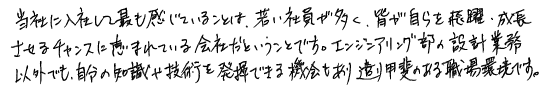 当社に入社して最も感じていることは、若い社員が多く、皆が自らを活躍・成長
させるチャンスに恵まれている会社だということです。エンジニアリング部の設計業務
以外でも、自分の知識や技術を発揮できる機会もあり造り甲斐のある職場環境です。